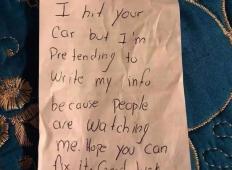 I hit your
Car but I'm
Pretending to
Write my info
because People
are watching
me. Hope you can
fix it. Good luck